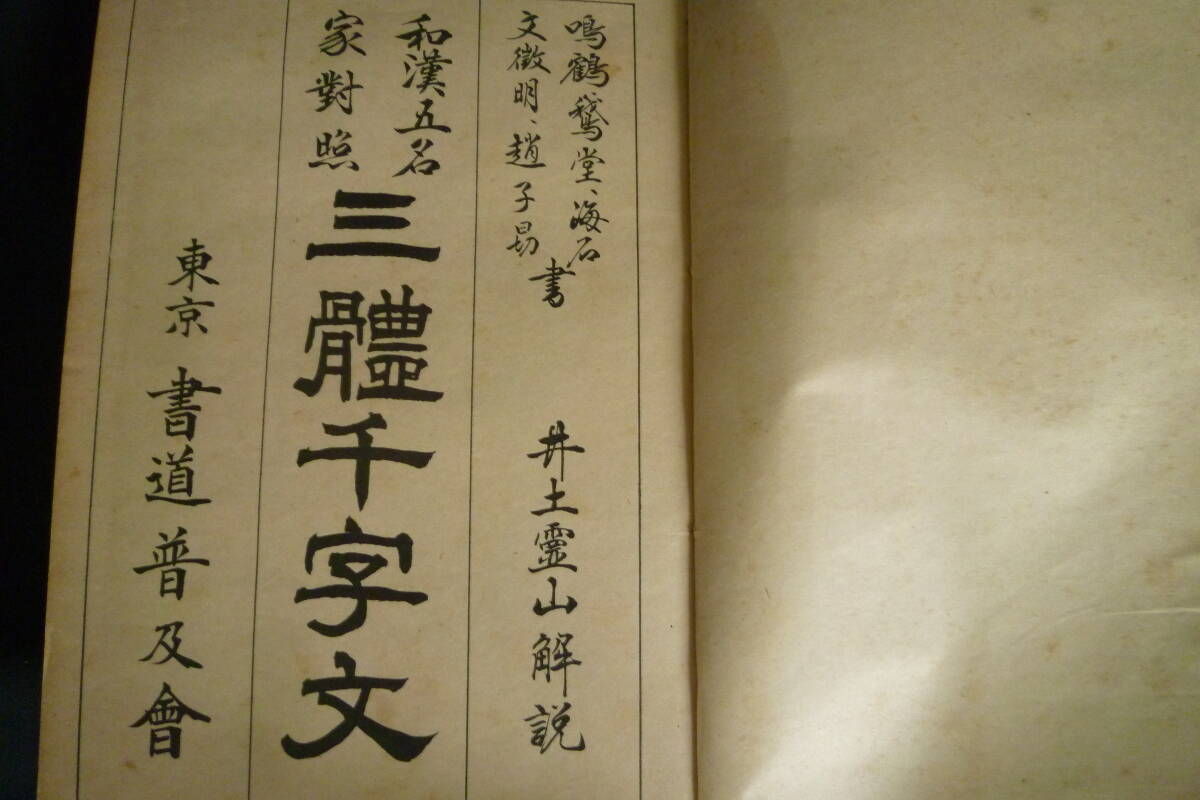 鳴鶴、鵞堂、海石
文徴明、趙子昂
書
井土靈山解説
和漢五名
家對照
三體千字文
東京 書道普及會